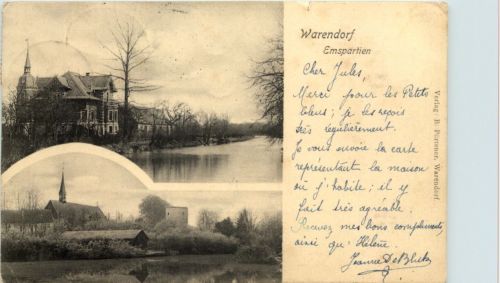 Warendorf
Emspartien
Cher Jules,
Merci pour les Petits
bleus; je les reçois
très régulièrement.
Je vous envoie la carte
représentant la maison
où j'habite; il y
fait très agréable.
Recevez mes bons compliments,
ainsi qu'Hélène.
Jeanne
Verlag B. Warendorf.